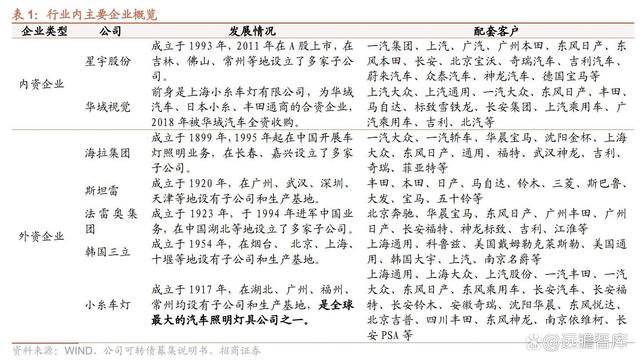 表 1：行业内主要企业概览
企业类型 公司 发展情况 配套客户
内资企业
星宇股份
成立于 1993 年，2011 年在 A 股上市，在
吉林、佛山、常州等地设立了多家子公
司。
一汽集团、上汽、广汽、广州本田、东风日产、东
风本田、长安、北京宝沃、奇瑞汽车、吉利汽车、
蔚来汽车、众泰汽车、神龙汽车、德国宝马等
华域视觉
前身是上海小糸车灯有限公司，为华域
汽车、日本小糸、丰田通商的合资企业，
2018 年被华域汽车全资收购。
上汽大众、上汽通用、一汽大众、东风日产、丰田、
马自达、标致雪铁龙、长安集团、上汽乘用车、广
汽乘用车、吉利、北汽等
外资企业
海拉集团
成立于 1899 年，1995 年起在中国开展车
灯照明业务，在长春、嘉兴设立了多家
子公司。
一汽大众、一汽轿车、华晨宝马、沈阳金杯、上海
大众、东风日产、通用、福特、武汉神龙、吉利、
奇瑞、菲亚特等
斯坦雷
成立于 1920 年，在广州、武汉、深圳、
天津等地设有子公司和生产基地。
丰田、本田、日产、马自达、铃木、三菱、斯巴鲁、
大发、宝马、五十铃等
法雷奥集
团
成立于 1923，于 1994 年进军中国业
务，在中国湖北等地设立了多家子公司。
北京奔驰、华晨宝马、东风日产、广州丰田、广州
日产、长安福特、神龙标致、吉利、江淮等
韩国三立
成立于 1954 年，在烟台、北京、上海、
十堰等地设有子公司和生产基地。
上海通用、科鲁兹、美国戴姆勒克莱斯勒、美国通
用、韩国大宇、上汽、南京名爵等
小糸车灯
成立于 1917 年，在湖北、广州、福州、
常州均设有子公司和生产基地，是全球
最大的汽车照明灯具公司之一。
上海通用、上海大众、上汽股份、一汽丰田、一汽
大众、东风日产、东风乘用车、长安汽车、长安福
特、长安铃木、安徽奇瑞、沈阳华晨、东风悦达、
北京吉普、四川丰田、东风神龙、南京依维柯、长
安 PSA 等
资料来源：WIND、公司可转债募集说明书、招商证券
@远瞻智库